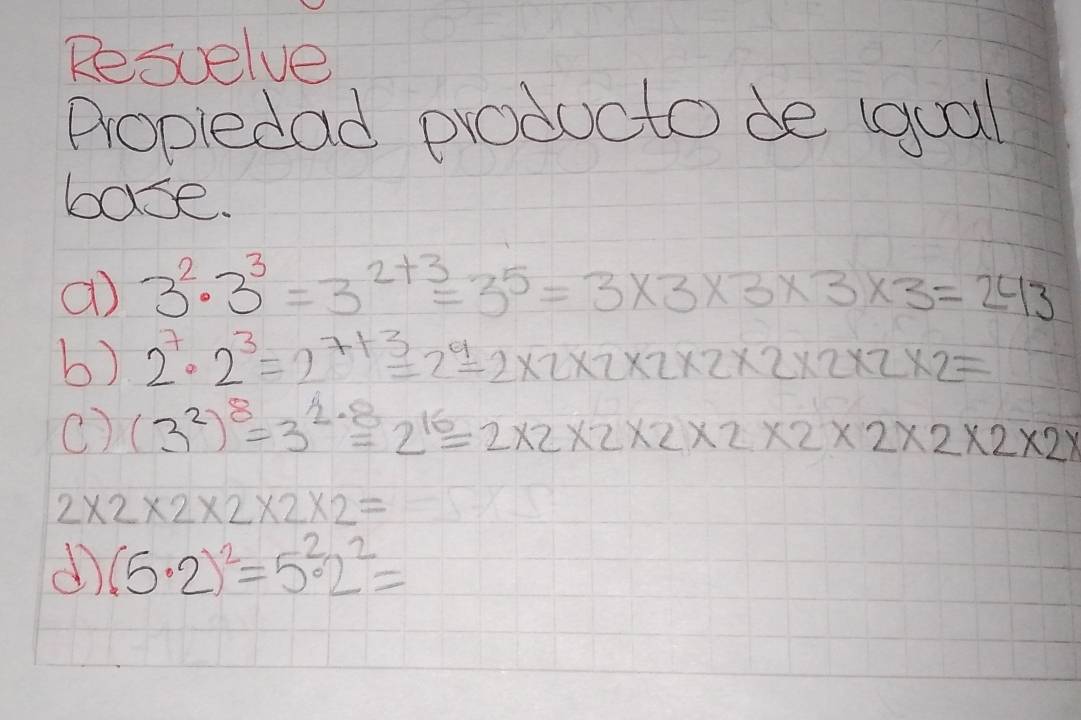 Resuelve
Propiedad producto de igual
base.
a) 3² • 3³ = 3²⁺³ = 3⁵ = 3×3×3×3×3 = 243
b) 2⁷ • 2³ = 2⁷⁺³ = 2⁹ = 2×2×2×2×2×2×2×2×2=
c) (3²)⁸ = 3²·⁸ = 2¹⁶ = 2×2×2×2×2×2×2×2×2×2×
2×2×2×2×2×2=
d) (5•2)² = 5²•2² =